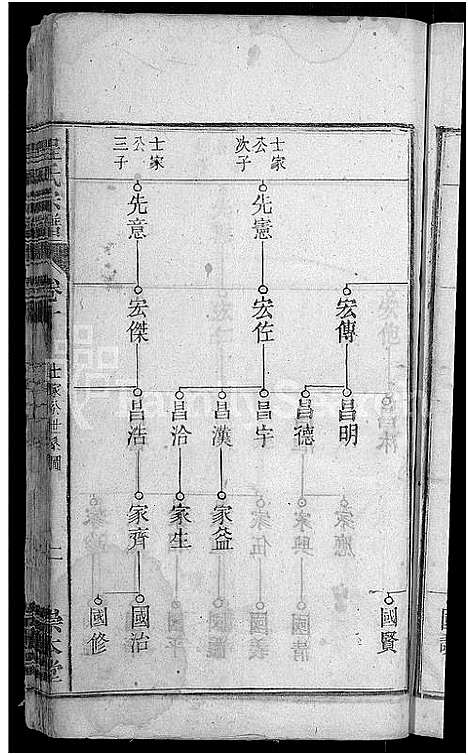 士家公次子
士家公三子
先憲
先意
宏傳
宏佐
宏傑
昌明
昌德
昌宇
昌漢
昌洽
昌浩
家益
家生
家齊
國賢
國治
國修
氏宗譜
卷
士家公世系圖
堂